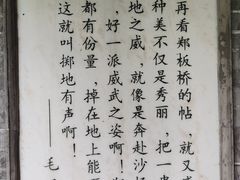 再看郑板桥的帖，就又感
种美不仅是秀丽，把一串
地之威，就像是奔赴沙场
，好一派威武之姿啊！
都有份量，掉在地上能
这就叫掷地有声啊！
——毛